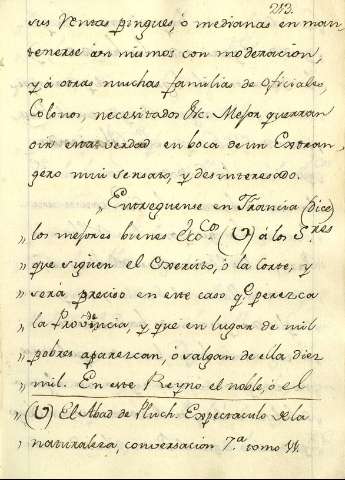 213.
sus Rentas pingues, ó medianas en man-
tenerse á sí mismos con moderacion,
y á otras muchas familias de Oficiales,
Colonos, necesitados &c. Mejor querran
oir esta verdad en boca de un Extran-
gero mui sensato, y desinteresado.
„ Entreguense en Francia (dice)
„ los mejores bienes Ecc.cos (V) á los S.res
„ que siguen el Exercito, ó la Corte, y
„ será preciso en este caso q.e perezca
„ la Provide.ncia, y que en lugar de mil
„ pobres aparezcan, ó salgan de ella diez
„ mil. En este Reyno el noble, ó el
(V) El Abad de Pluch. Expectaculo de la
naturaleza, conversacion 7.a tomo VI.